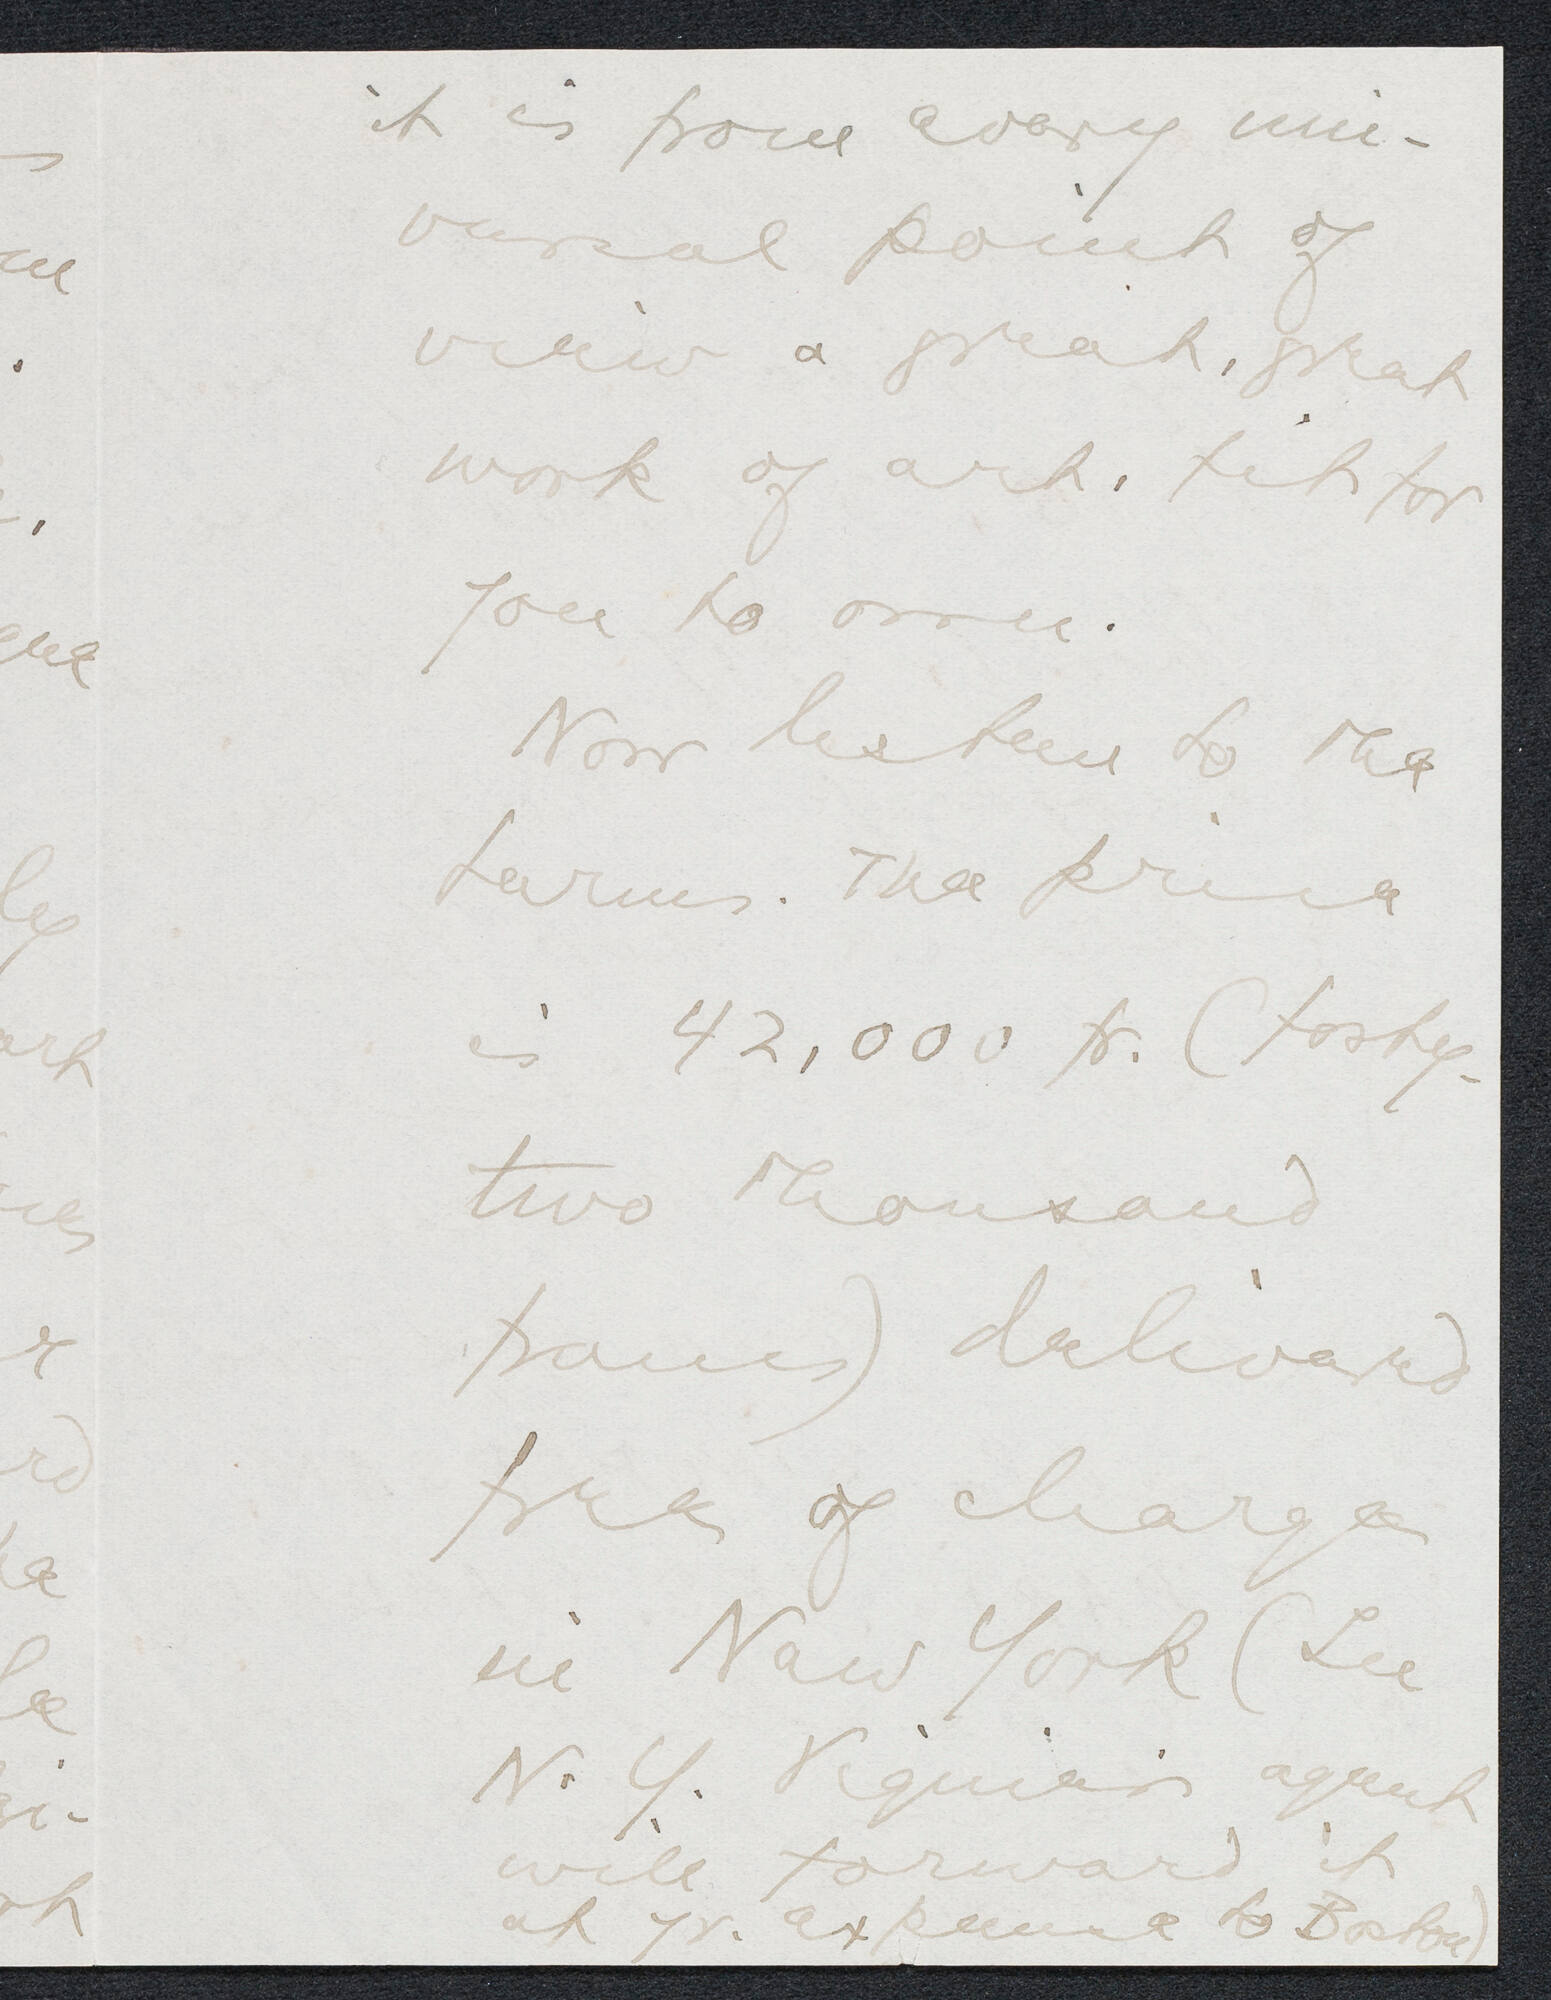 it is from every uni-
versal point of
view a great, great
work of art, fit for
you to own.
Now listen to the
terms. The price
is 42,000 fr. (forty-
two thousand
francs) delivered
free of charge
in New York (In
N. Y. Vignier's agent
will forward it
at yr. expense to Boston)